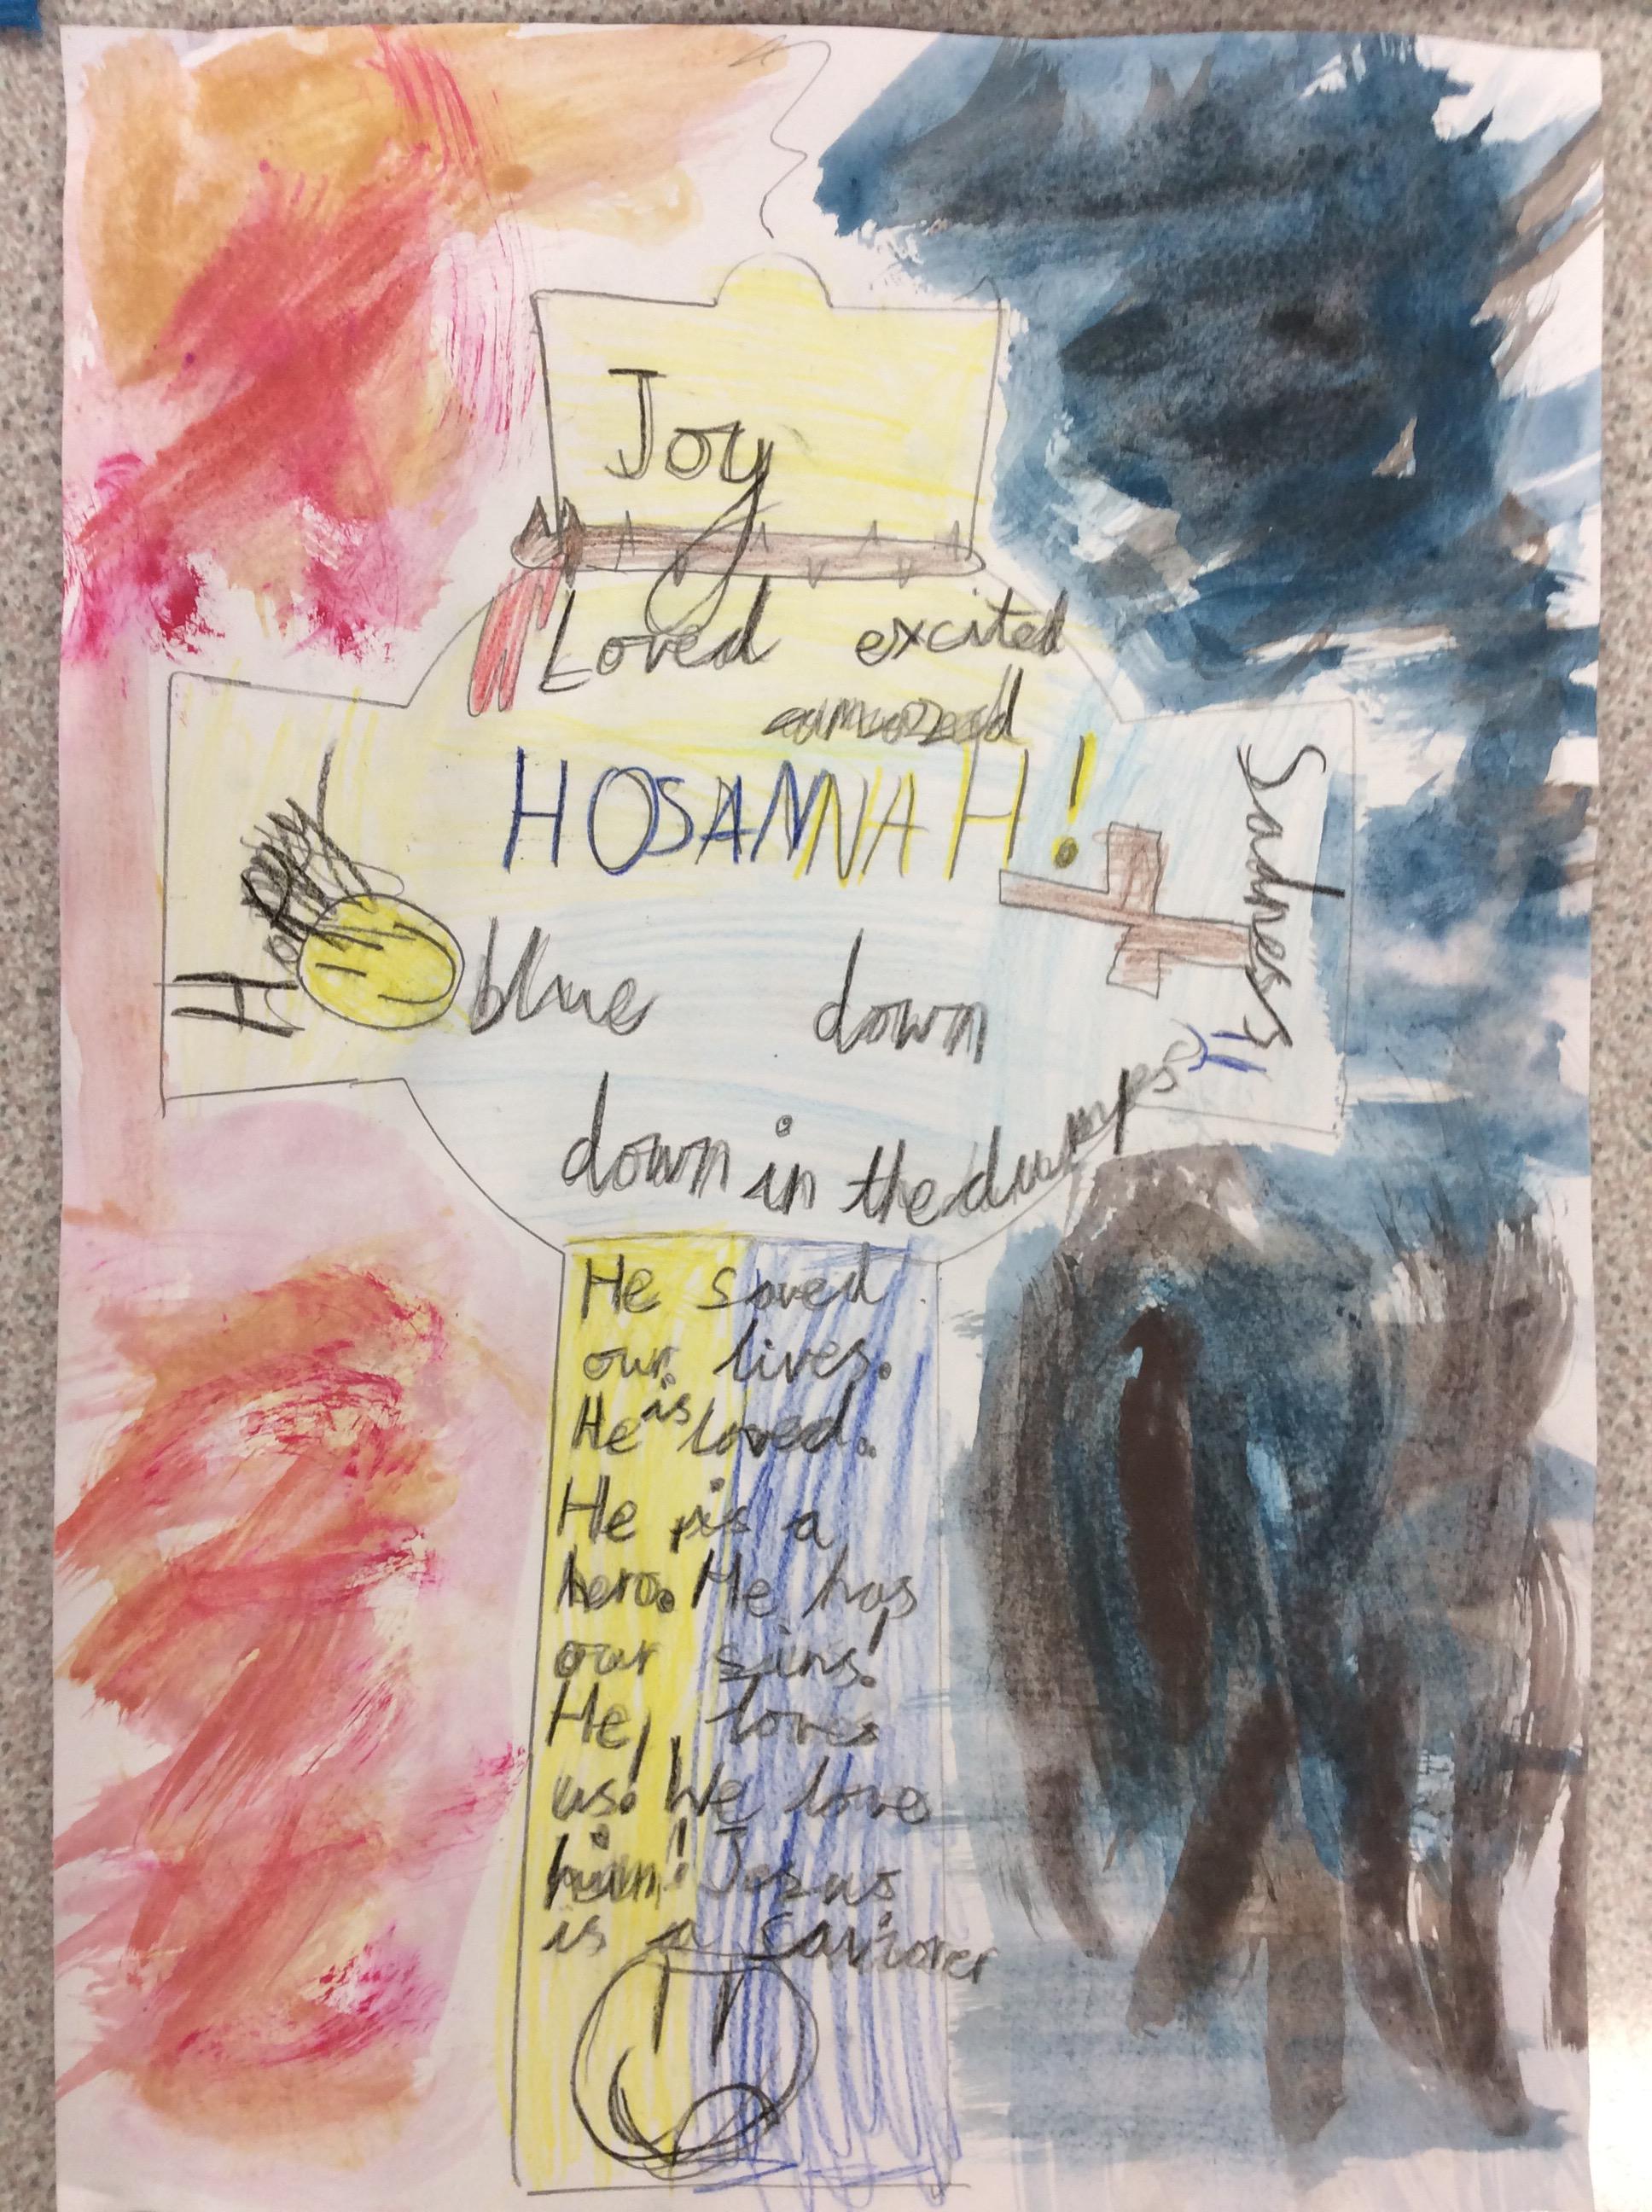 Joy
Loved excited
HOSANNAH!
Happy
Sadness
blue down
down in the dumps
He saved
our lives.
He is loved.
He is a
hero. He has
our sins!
He loves
us! We love
him! Jesus
is a saviorer